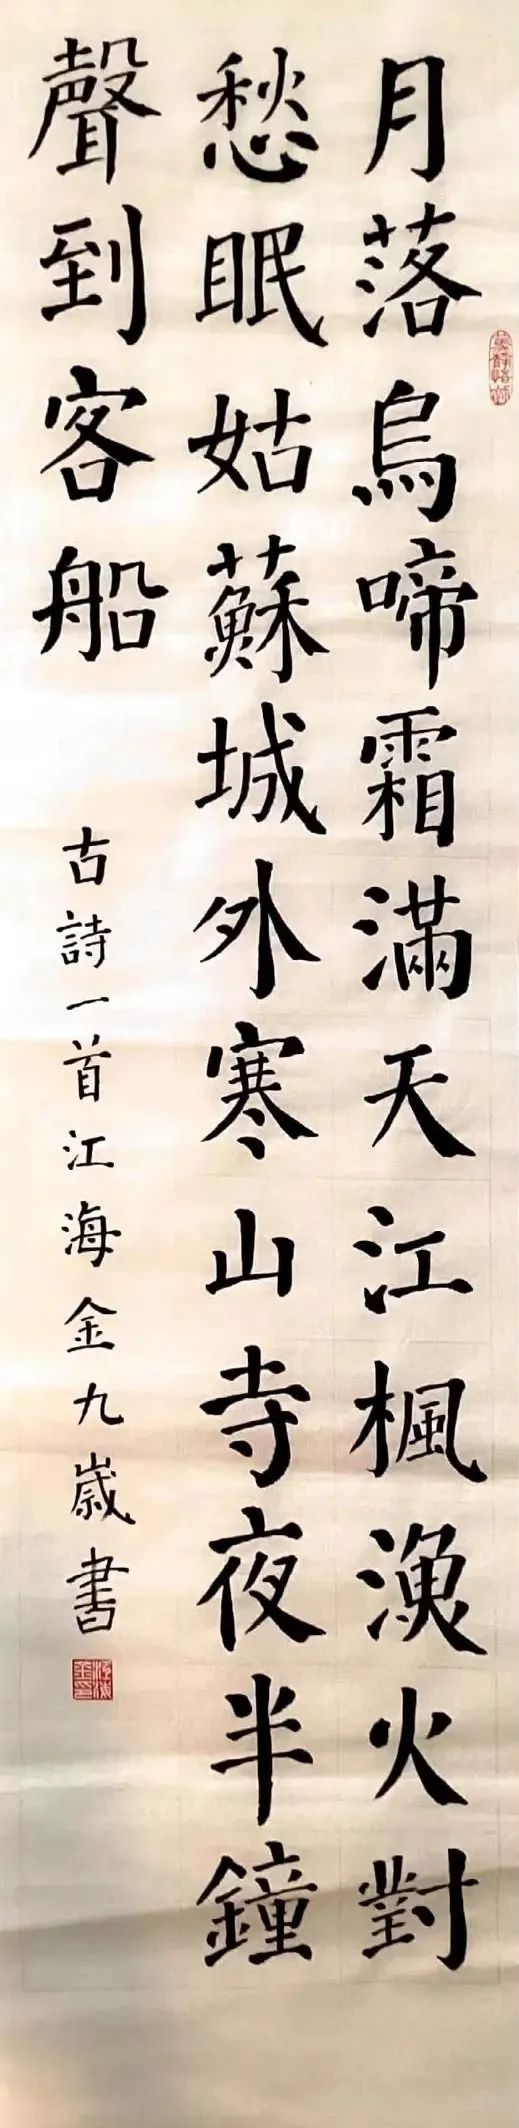 月落烏啼霜滿天江楓漁火對
愁眠姑蘇城外寒山寺夜半鐘
聲到客船
古詩一首江海金九歲書